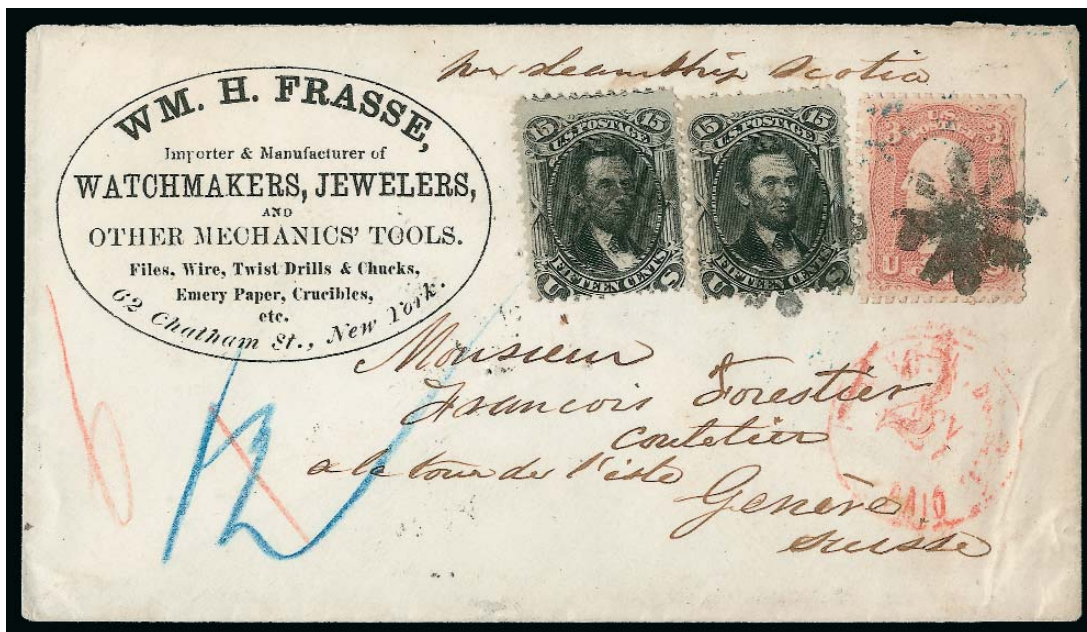 per steamship Scotia
WM. H. FRASSE,
Importer & Manufacturer of
WATCHMAKERS, JEWELERS,
AND
OTHER MECHANICS' TOOLS.
Files, Wire, Twist Drills & Chucks,
Emery Paper, Crucibles,
etc.
62 Chatham St., New York.
15 U.S. POSTAGE 15
FIFTEEN CENTS
U S
15 U.S. POSTAGE 15
FIFTEEN CENTS
U
3 U.S. 3
U
Monsieur
Francois Forestier
coutelier
a la tour de l'isle
Genève
Suisse
PAID
6
12